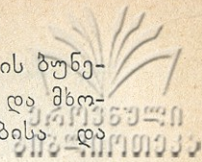 ის ბუნე-
და მხო-
ბისა და
ეროვნული
ბიბლიოთეკა